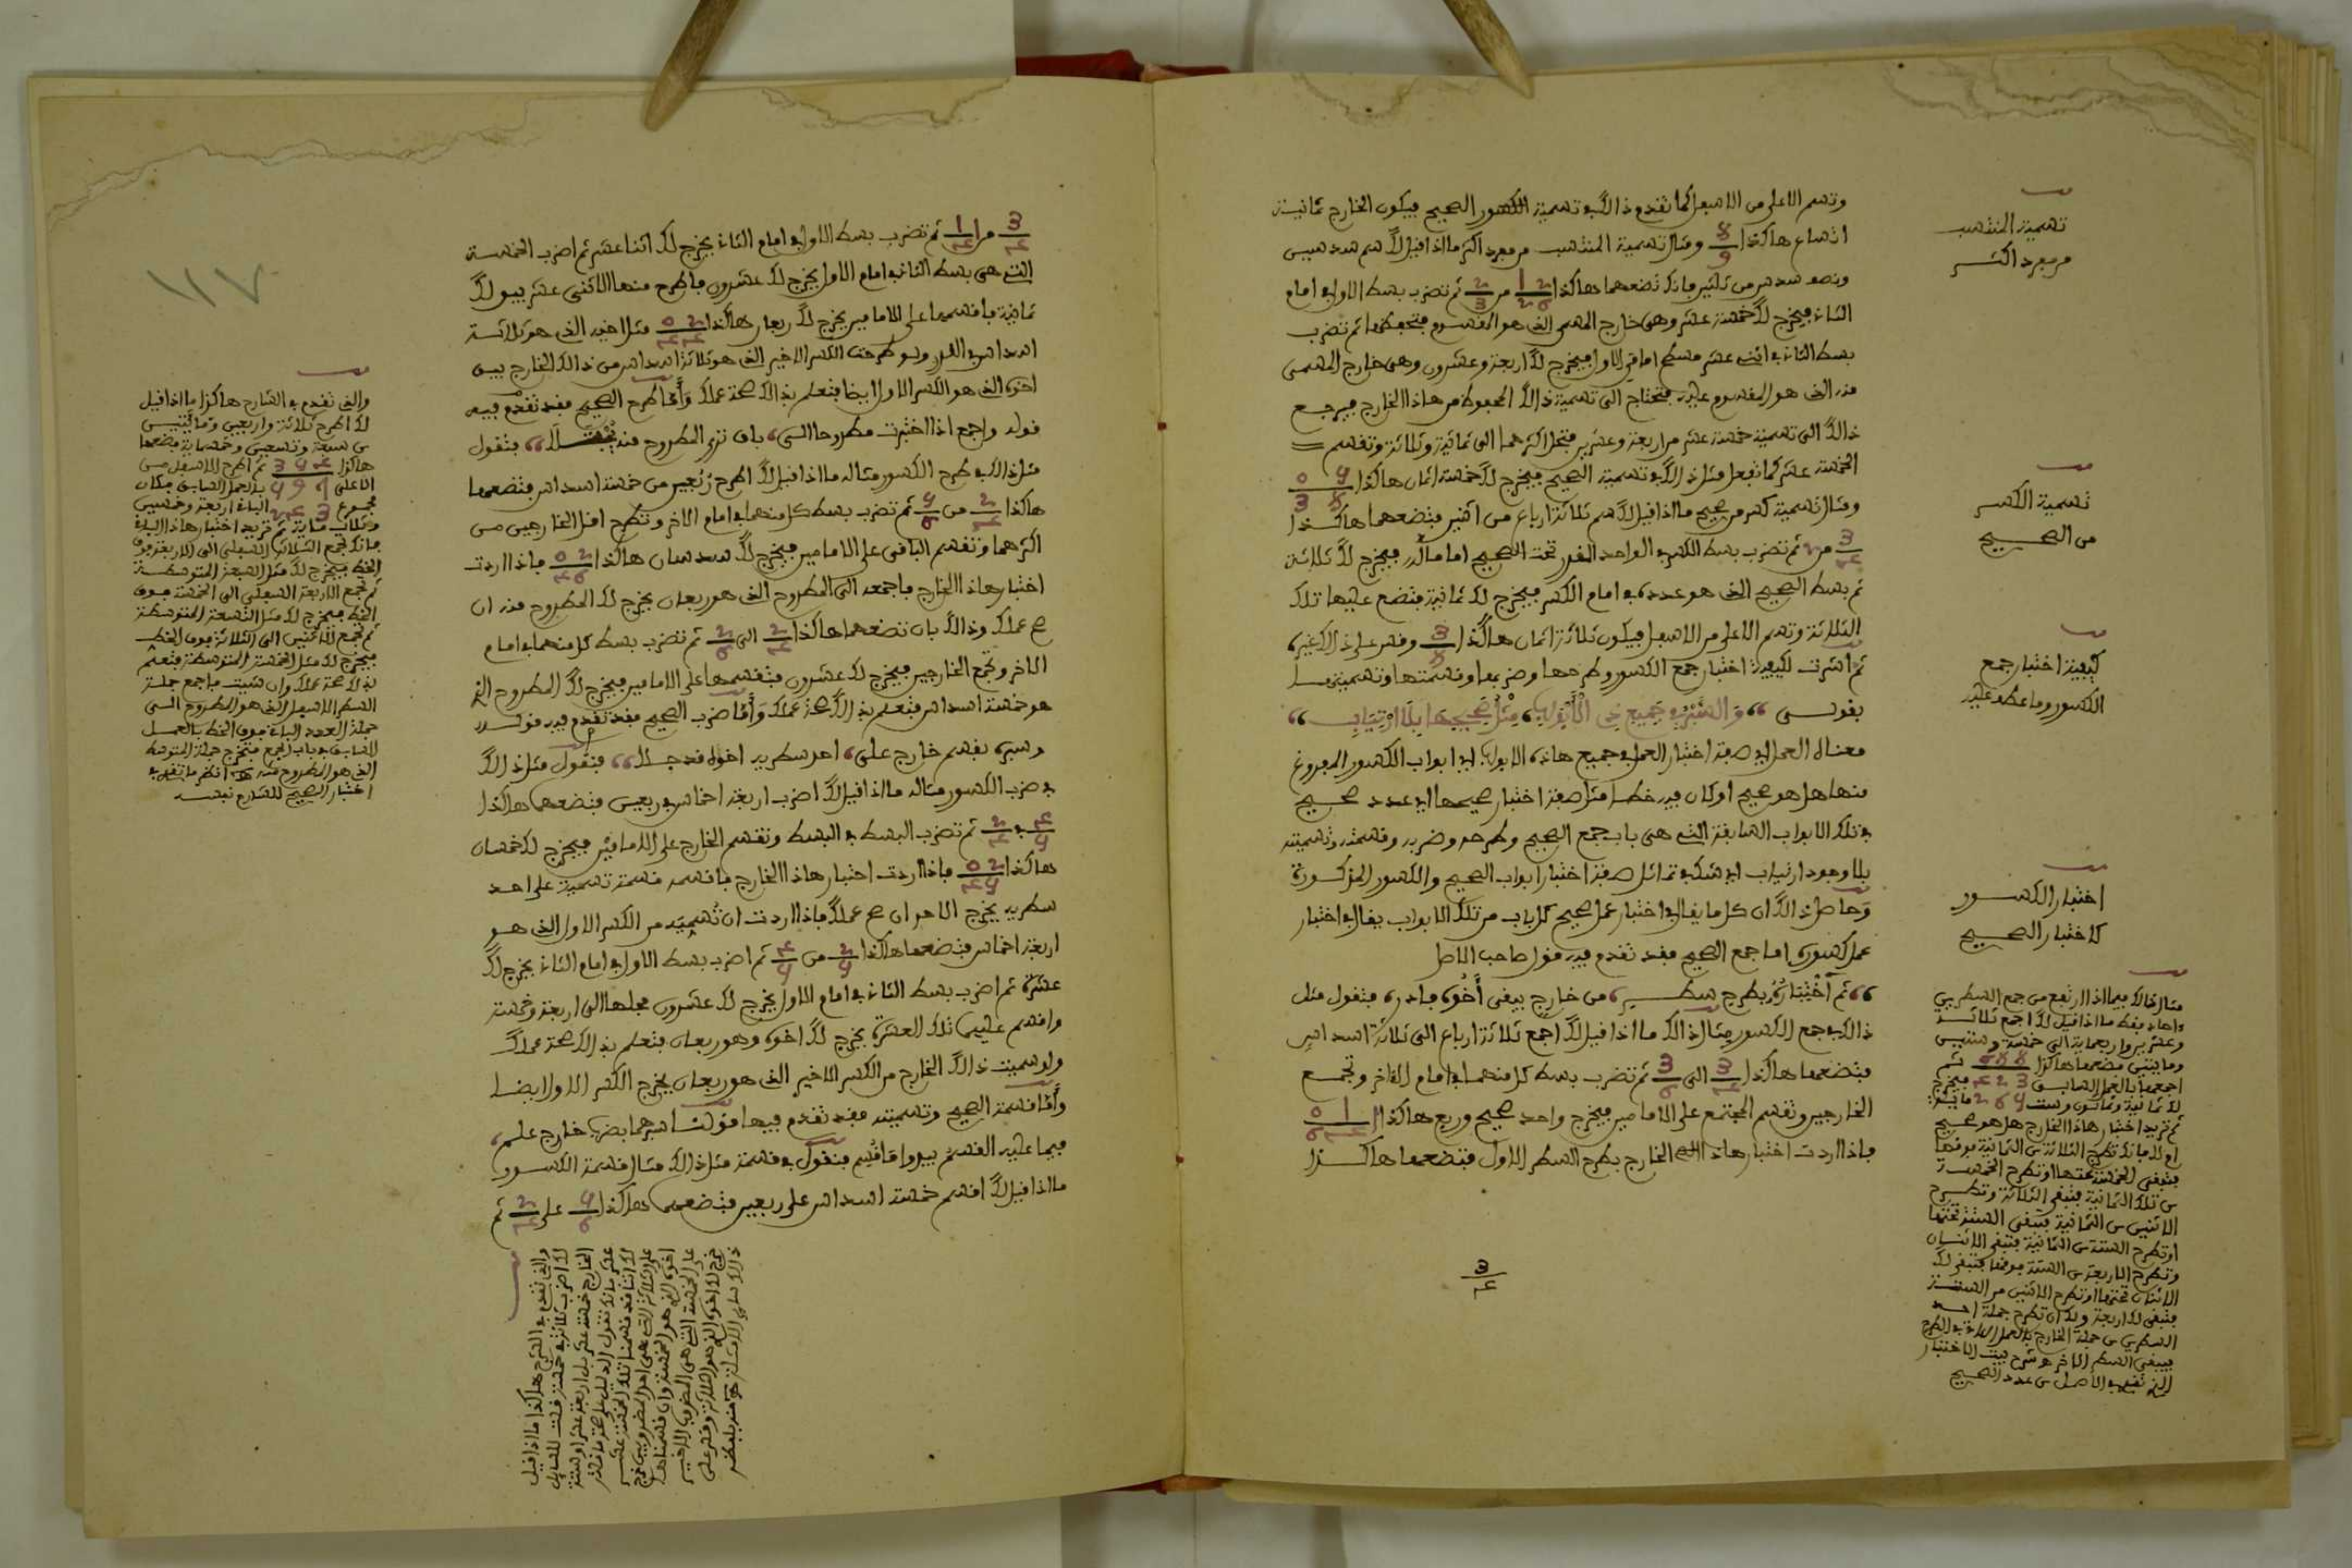 وتسم الاعلى من الاسفل كما تقدم ذالك في تسمية الكسور الصحيح فيكون الخارج ثمانية
اتساع هاكذا 8/9 ومثال تسمية المنتسب من مفرد اكثر ما اذا قيل لك سم سدسين
ونصف سدس من ثلثين فانك تضعهما هاكذا من 2/3 ثم تضرب بسط الاول في امام
الثاني فيخرج لك خمسة عشر وهي خارج المسمى الذي هو المقسوم فتحفظها ثم تضرب
بسط الثاني في اثني عشر مسطح امامي الاول فيخرج لك اربعة وعشرون وهي خارج المسمى
منه الذي هو المقسوم عليه فتحتاج الى تسمية ذالك المحفوظ من هاذا الخارج فيرجع
ذالك الى تسمية خمسة عشر من اربعة وعشرين فتحل اكثرهما الى ثمانية وثلاثة وتقسم
الخمسة عشر كما تفعل مثل ذالك في تسمية الصحيح فيخرج لك خمسة اثمان هاكذا
ومثال تسمية كسر من صحيح ما اذا قيل لك سم ثلاثة ارباع من اثنين فتضعهما هاكذا
3/4 من 2 ثم تضرب بسط الكسر في الواحد المقدر تحت الصحيح اماما له فيخرج لك ثلاثة
ثم بسط الصحيح الذي هو عدده في امام الكسر فيخرج لك ثمانية فتضع عليها تلك
الثلاثة وتسم الاعلى من الاسفل فيكون ثلاثة اثمان هاكذا 3/8 وقس على ذالك غيره
ثم اشرت لكيفية اختبار جمع الكسور وطرحها وضربها وقسمتها وتسميتها
بقولي والخبر في جميع ذي الأبواب مثل صحيحها بلا ارتياب
معناه العمل في صفة اختبار العمل في جميع هاذه الابواب اي ابواب الكسور المفروغ
منها هل هو صحيح او كان فيه خطأ مثل صفة اختبار صحيحها اي عدد صحيح
في تلك الابواب السابقة التي هي باب جمع الصحيح وطرحه وضربه وقسمته وتسميته
بلا وجود ارتياب اي شك في تماثل صفة اختبار ابواب الصحيح والكسور المذكورة
وحاصل ذالك ان كل ما يقال في اختبار عمل صحيح كل باب من تلك الابواب يقال في اختبار
عمل كسوره اما جمع الصحيح فقد تقدم فيه قول صاحب الاصل
ثم اختباره بطرح سطر من خارج يبقى أخوه فادر فتقول مثل
ذالك في جمع الكسور مثال ذالك ما اذا قيل لك اجمع ثلاثة ارباع الى ثلاثة اسداس
فتضعهما هاكذا 3/4 الى 3/6 ثم تضرب بسط كل منهما في امام الاخر وتجمع
الخارجين وتقسم المجتمع على الامامين فيخرج واحد صحيح وربع هاكذا
فاذا اردت اختبار هاذا الخارج بطرح السطر الاول فتضعهما هاكذا
3/4
تسمية المنتسب
من مفرد اكثر
تسمية الكسر
من الصحيح
كيفية اختبار جمع
الكسور وما عطف عليه
اختبار الكسور
كاختبار الصحيح
مثال ذالك فيما اذا ارتفع من جمع السطرين
ءاحاد فقط ما اذا قيل لك اجمع ثلاثة
وعشرين واربعماية الى خمسة وستين
ومايتين فضعهما هاكذا
اجمعهما بالعمل السابق فيخرج
لك ثمانية وثمانون وست ماية
ثم تريد اختبار هاذا الخارج هل هو صحيح
او لا فانك تطرح الثلاثة من الثمانية فوقها
فتبقى الخمسة تحتها او تطرح الخمسة
من تلك الثمانية فتبقى الثلاثة وتطرح
الاثنين من الثمانية فتبقى الستة تحتها
او تطرح الستة من الثمانية فتبقى الاثنان
وتطرح الاربعة من الستة فوقها فتبقى لك
الاثنان تحتها او تطرح الاثنين من الستة
فتبقى لك اربعة ولك ان تطرح جملة احد
السطرين من جملة الخارج بالعمل الاتي في الطرح
فيبقى السطر الاخر
3/4 من 1/4 ثم تضرب بسط الاول في امام الثاني يخرج لك اثنا عشر ثم اضرب الخمسة
التي هي بسط الثاني في امام الاول يخرج لك عشرون فاطرح منها الاثني عشر يبق لك
ثمانية فاقسمها على الامامين يخرج لك ربعان هاكذا مثل اخيه الذي هو ثلاثة
اسداس في القدر ولو طرحت الكسر الاخير الذي هو ثلاثة اسداس من ذالك الخارج يبق
اخوه الذي هو الكسر الاول ايضا فتعلم بذالك صحة عملك وأما طرح الصحيح فقد تقدم فيه
قوله واجمع اذا اختبرت مطروحا الى باق ترى المطروح منه فتقول
مثل ذالك في طرح الكسور مثاله ما اذا قيل لك اطرح ربعين من خمسة اسداس فتضعهما
هاكذا 2/4 من 5/6 ثم تضرب بسط كل منهما في امام الاخر وتطرح اقل الخارجين من
اكثرهما وتقسم الباقي على الامامين فيخرج لك سدسان هاكذا فاذا اردت
اختبار هاذا الخارج فاجمعه الى المطروح الذي هو ربعان يخرج لك المطروح منه ان
صح عملك وذالك بان تضعهما هاكذا 2/4 الى 2/6 ثم تضرب بسط كل منهما في امام
الاخر وتجمع الخارجين فيخرج لك عشرون فتقسمها على الامامين فيخرج لك المطروح الذي
هو خمسة اسداس فتعلم بذالك صحة عملك وأما ضرب الصحيح فقد تقدم فيه قوله
وسبره بقسم خارج على احد سطريه اخوه قد جلا فتقول مثل ذالك
في ضرب الكسور مثاله ما اذا قيل لك اضرب اربعة اخماس في ربعين فتضعهما هاكذا
4/5 في 2/4 ثم تضرب البسط في البسط وتقسم الخارج على الامامين فيخرج لك خمسان
هاكذا فاذا اردت اختبار هاذا الخارج فاقسمه قسمة تسمية على احد
سطريه يخرج الاخر ان صح عملك فاذا اردت ان تسميه من الكسر الاول الذي هو
اربعة اخماس فتضعهما هاكذا 2/5 من 4/5 ثم اضرب بسط الاول في امام الثاني يخرج لك
عشرة ثم اضرب بسط الثاني في امام الاول يخرج لك عشرون فحلها الى اربعة وخمسة
واقسم عليهما تلك العشرة يخرج لك اخوه وهو ربعان فتعلم بذالك صحة عملك
ولو سميت ذالك الخارج من الكسر الاخير الذي هو ربعان يخرج الكسر الاول ايضا
وأما قسمة الصحيح وتسميته فقد تقدم فيها قوله اسبرهما بضرب خارج علم
فيما عليه القسم يبدوا ما قسم فتقول في قسمة مثل ذالك مثال قسمة الكسور
ما اذا قيل لك اقسم خمسة اسداس على ربعين فتضعهما هاكذا 5/6 على 2/4 ثم
١١٧
والذي تقدم في الشارح هاكذا ما اذا قيل
لك اطرح ثلاثة واربعين ومايتين
من سبعة وتسعين وخمسماية فضعها
هاكذا ثم اطرح الاسفل من
الاعلى بالعمل السابق فكان
الباقي اربعة وخمسين
وثلاث ماية ثم تريد اختبار هاذا الباقي
فانك تجمع الثلاثة السفلى الى الاربعة فوق
الخط فيخرج لك مثل السبعة المتوسطة
ثم تجمع الاربعة السفلى الى الخمسة فوق
الخط فيخرج لك مثل التسعة المتوسطة
ثم تجمع الاثنين الى الثلاثة فوق الخط
فيخرج لك مثل الخمسة المتوسطة فتعلم
بذالك صحة عملك وان شئت فاجمع جملة
السطر الاسفل الذي هو المطروح الى
جملة العدد الباقي فوق الخط بالعمل
السابق في باب الجمع فتخرج جملة المتوسط
الذي هو المطروح منه